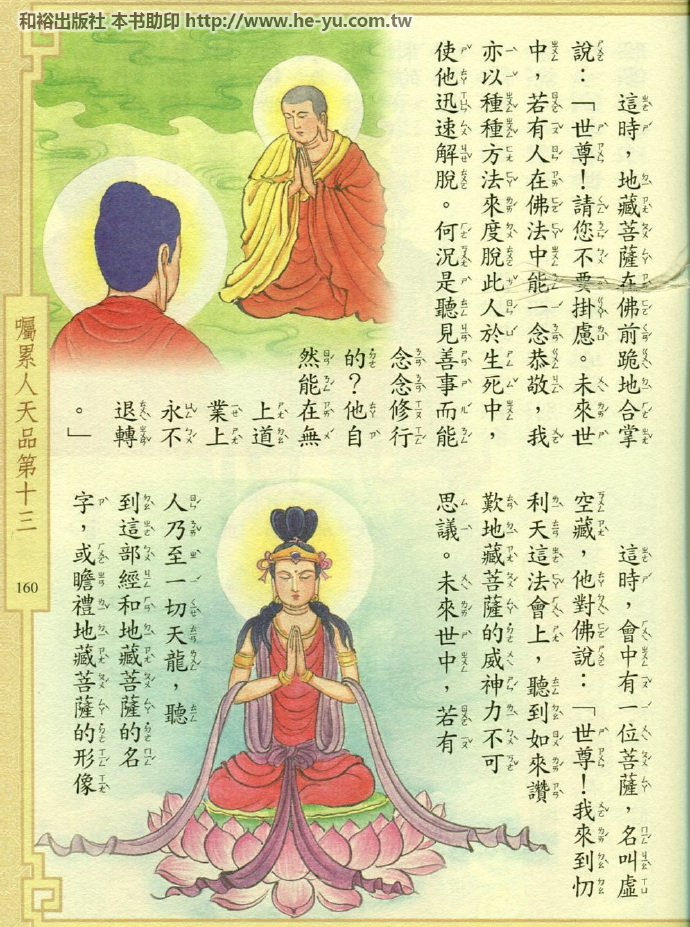 和裕出版社 本书助印 http://www.he-yu.com.tw
這時，地藏菩薩在佛前跪地合掌
說：「世尊！請您不要掛慮。未來世
中，若有人在佛法中能一念恭敬，我
亦以種種方法來度脫此人於生死中，
使他迅速解脫。何況是聽見善事而能
念念修行
的？他自
然能在無
上道
業上
永不
退轉
。」
這時，會中有一位菩薩，名叫虛
空藏，他對佛說：「世尊！我來到忉
利天這法會上，聽到如來讚
歎地藏菩薩的威神力不可
思議。未來世中，若有
人乃至一切天龍，聽
到這部經和地藏菩薩的名
字，或瞻禮地藏菩薩的形像
囑累人天品第十三
160